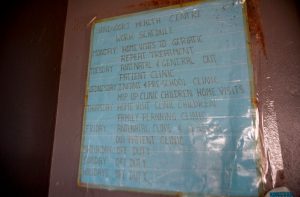 HEALTH CENTRE
WORK SCHEDULE
MONDAY HOME VISITS TO GERIATIC
REPEAT TREATMENT
TUESDAY ANTENATAL & GENERAL OUT
PATIENT CLINIC
WEDNESDAY INFANT & PRE-SCHOOL CLINIC
MOP UP CLINIC CHILDREN HOME VISITS
THURSDAY HOME VISIT CLINIC CHILDREN
FAMILY PLANNING CLINIC
FRIDAY ANTENATAL CLINIC &
OUT PATIENT CLINIC
OFF DUTY
SUNDAY OFF DUTY
HOLIDAYS OFF DUTY